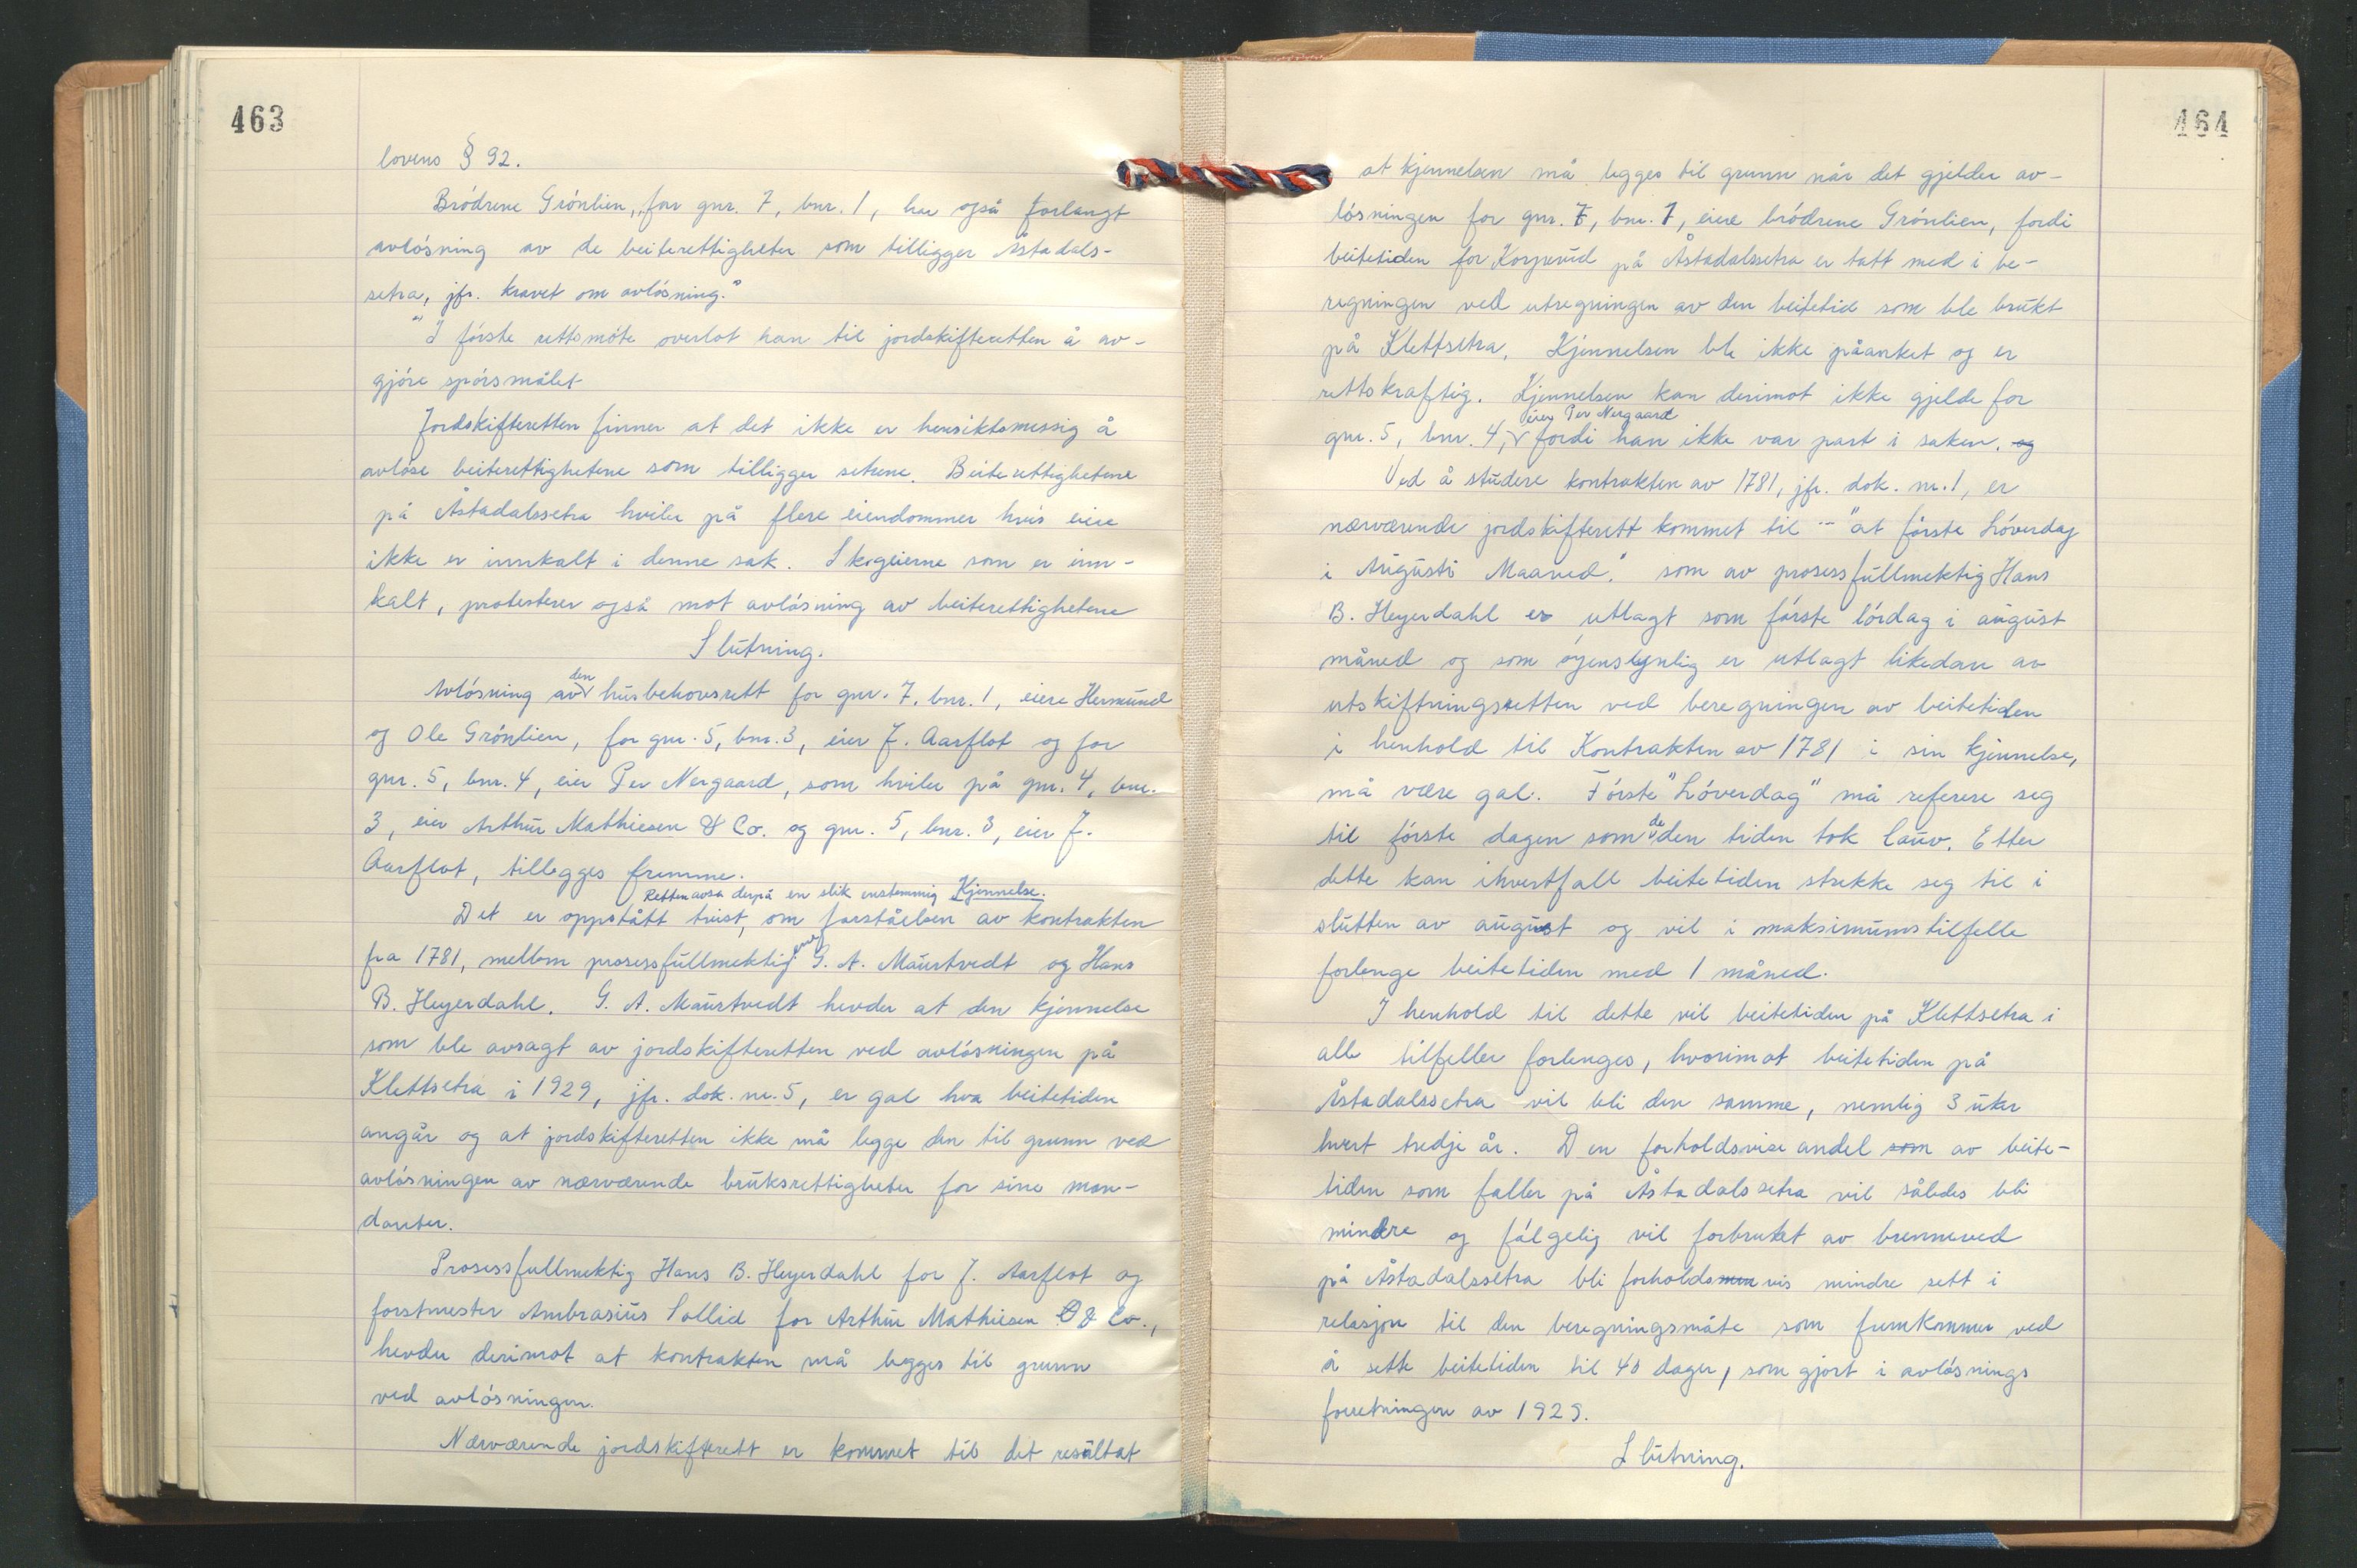 463
lovens § 92.
Brödrene Grönlien, for gnr. 7, bnr. 1, har også forlangt
avlösning av de beiterettigheter som tilligger Åstadals-
setra, jfr. kravet om avlösning."
"I förste rettsmöte overlot han til jordskifteretten å av-
gjöre spörsmålet
Jordskifteretten finner at det ikke er hensiktsmessig å
avlöse beiterettighetene som tilligger setrene. Beiterettighetene
på Åstadalssetra hviler på flere eiendommer hvis eiere
ikke er innkalt i denne sak. Skogeierne som er inn-
kalt, protesterer også mot avlösning av beiterettighetene
Slutning.
Avlösning av den husbehovsrett for gnr. 7, bnr. 1, eiere Hermund
og Ole Grönlien, for gnr. 5, bnr. 3, eier J. Aarflot og for
gnr. 5, bnr. 4, eier Per Nergaard, som hviler på gnr. 4, bnr.
3, eier Arthur Mathiesen & Co. og gnr. 5, bnr. 3, eier J.
Aarflot, tillegges fremme.
Retten avsa derpå en slik enstemmig Kjennelse.
Det er oppstått tvist, om forståelsen av kontrakten
fra 1781, mellom prosessfullmektig G. A. Maurtvedt og Hans
B. Heyerdahl. G. A. Maurtvedt hevder at den kjennelse
som ble avsagt av jordskifteretten ved avlösningen på
Klettsetra i 1929, jfr. dok. nr. 5, er gal hva beitetiden
angår og at jordskifteretten ikke må legge den til grunn ved
avlösningen av nærværende bruksrettigheter for sine man-
danter.
Prosessfullmektig Hans B. Heyerdahl for J. Aarflot og
forstmester Ambrosius Sollid for Arthur Mathiesen & Co.,
hevder derimot at kontrakten må legges til grunn
ved avlösningen.
Nærværende jordskifterett er kommet til det resultat
464
at kjennelsen må legges til grunn når det gjelder av-
lösningen for gnr. 7, bnr. 1, eiere brödrene Grönlien, fordi
beitetiden for Korpevid på Åstadalssetra er tatt med i be-
regningen ved utregningen av den beitetid som ble brukt
på Klettsetra. Kjennelsen ble ikke påanket og er
rettskraftig. Kjennelsen kan derimot ikke gjelde for
gnr. 5, bnr. 4, eier Per Nergaard fordi han ikke var part i saken. og
Ved å studere kontrakten av 1781, jfr. dok. nr. 1, er
nærværende jordskifterett kommet til -- "at förste Löverdag
i Augusti Maaned." som av prosessfullmektig Hans
B. Heyerdahl er utlagt som förste lördag i august
måned og som öyenslynlig er utlagt likedan av
utskiftningsretten ved beregningen av beitetiden
i henhold til Kontrakten av 1781 i sin kjennelse,
må være gal. Förste "Löverdag" må referere seg
til förste dagen som de den tiden tok lauv. Etter
dette kan ihvertfall beitetiden strekke seg til i
slutten av august og vil i maksimumstilfelle
forlenge beitetiden med 1 måned.
I henhold til dette vil beitetiden på Klettsetra i
alle tilfeller forlenges, hvorimot beitetiden på
Åstadalssetra vil bli den samme, nemlig 3 uker
hvert tredje år. Den forholdsvise andel som av beite-
tiden som faller på Åstadalssetra vil således bli
mindre og fölgelig vil forbruket av brenneved
på Åstadalssetra bli forholdsvis mindre sett i
relasjon til den beregningsmåte som fremkommer ved
å sette beitetiden til 40 dager, som gjort i avlösnings
forretningen av 1929.
Slutning.